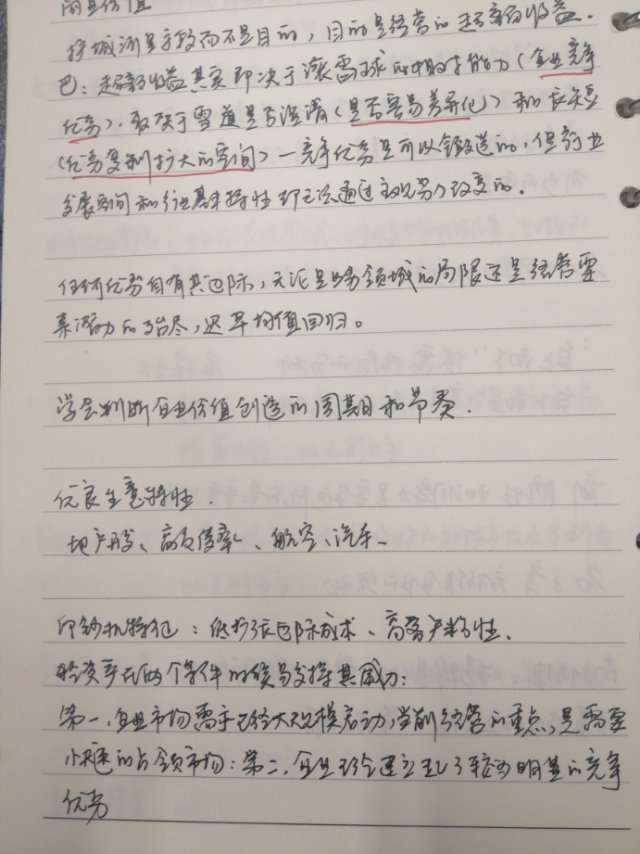 商业价值
护城河是手段而不是目的，目的是经营的超额收益.
巴：超额收益其实取决于滚雪球的能力（企业竞争
优势）.取决于雪道是否湿滑（是否容易差异化）和长短
（优势复制扩大的空间）—竞争优势是可以锻造的，但行业
发展空间和行业基本特性却无法通过主观努力改变的.
任何优势自有其边际，无论是业务领域的局限还是经营要
素潜力的殆尽，迟早均值回归。
学会判断企业价值创造的周期和节奏.
优良生意特性.
地产股、高负债率、航空、汽车.
印钞机特征：低扩张边际成本、高客户粘性.
轻资产在两个条件的时候发挥其威力：
第一，企业市场需求已经大规模启动，当前经营的重点，是需要
快速的占领市场：第二，企业现金建立起了较为明显的竞争
优势